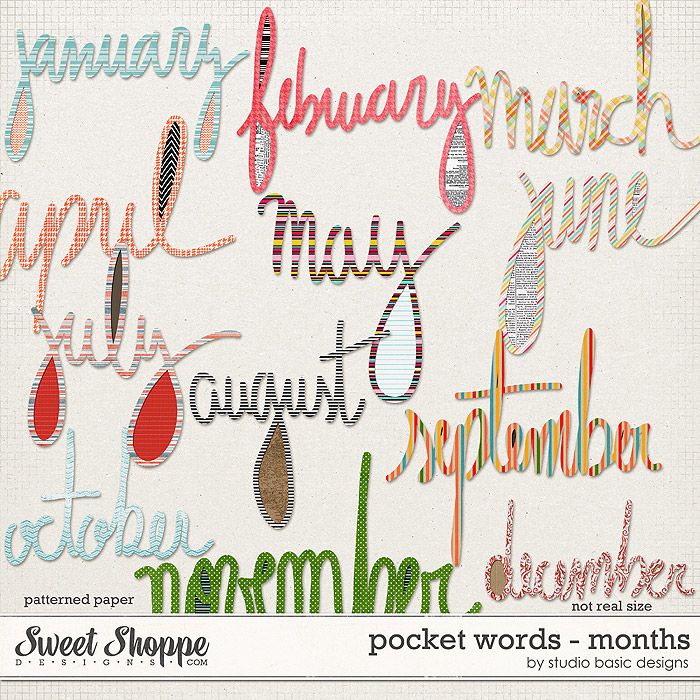 january
february
march
april
may
june
july
august
september
october
november
december
patterned paper
not real size
Sweet Shoppe
DESIGNS.COM
pocket words - months
by studio basic designs